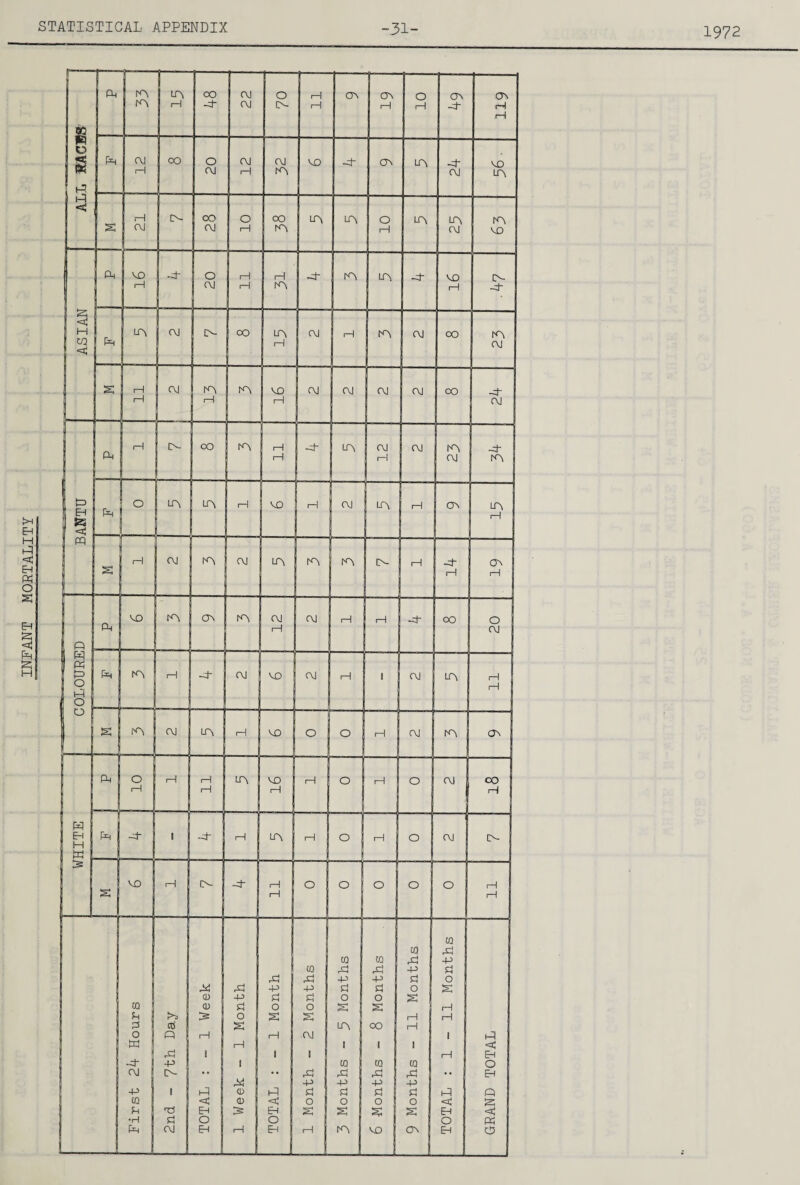 STATISTICAL APPENDIX -31- 1972
INFANT MORTALITY
WHITE COLOURED BANTU ASIAN ALL RACES
M F P M F P M F P M F P M F P
First 24 Hours 6 4 10 3 3 6 1 0 1 11 5 16 21 12 33
2nd - 7th Day 1 - 1 2 1 3 2 5 7 2 2 4 7 8 15
TOTAL : - 1 Week 7 4 11 5 4 9 3 5 8 13 7 20 28 20 48
1 Week - 1 Month 4 1 5 1 2 3 2 1 3 3 8 11 10 12 22
TOTAL : - 1 Month 11 5 16 6 6 12 5 6 11 16 15 31 38 32 70
1 Month - 2 Months 0 1 1 0 2 2 3 1 4 2 2 4 5 6 11
3 Months - 5 Months 0 0 0 0 1 1 3 2 5 2 1 3 5 4 9
6 Months - 8 Months 0 1 1 1 - 1 7 5 12 2 3 5 10 9 19
9 Months - 11 Months 0 0 0 2 2 4 1 1 2 2 2 4 5 5 10
TOTAL : 1 - 11 Months 0 2 2 3 5 8 14 9 23 8 8 16 25 24 49
GRAND TOTAL 11 7 18 9 11 20 19 15 34 24 23 47 63 56 119